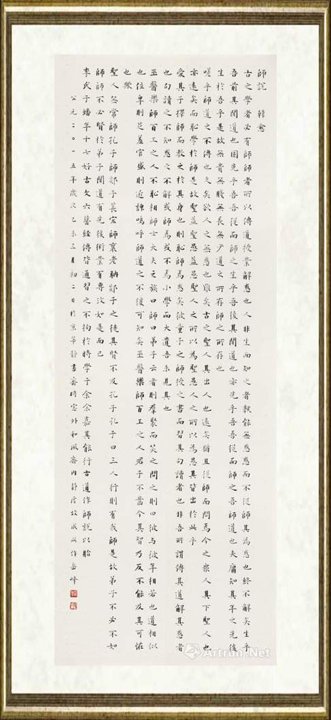 師說　韓愈
古之學者必有師師者所以傳道授業解惑也人非生而知之者孰能無惑惑而不從師其為惑也終不解矣生乎
吾前其聞道也固先乎吾吾從而師之生乎吾後其聞道也亦先乎吾吾從而師之吾師道也夫庸知其年之先後
生於吾乎是故無貴無賤無長無少道之所存師之所存也
嗟乎師道之不傳也久矣欲人之無惑也難矣古之聖人其出人也遠矣猶且從師而問焉今之眾人其下聖人也
亦遠矣而恥學於師是故聖益聖愚益愚聖人之所以為聖愚人之所以為愚其皆出於此乎
愛其子擇師而教之於其身也則恥師焉惑矣彼童子之師授之書而習其句讀者也非吾所謂傳其道解其惑者
也句讀之不知惑之不解或師焉或不焉小學而大遺吾未見其明也
巫醫樂師百工之人不恥相師士大夫之族曰師曰弟子云者則群聚而笑之問之則曰彼與彼年相若也道相似
也位卑則足羞官盛則近諛嗚呼師道之不復可知矣巫醫樂師百工之人君子不齒今其智乃反不能及其可怪
也歟
聖人無常師孔子師郯子萇弘師襄老聃郯子之徒其賢不及孔子孔子曰三人行則必有我師是故弟子不必不如
師師不必賢於弟子聞道有先後術業有專攻如是而已
李氏子蟠年十七好古文六藝經傳皆通習之不拘於時學于余余嘉其能行古道作師說以貽
公元二〇一五年歲次乙未三月初二日於京華靜書齋時窗外和風